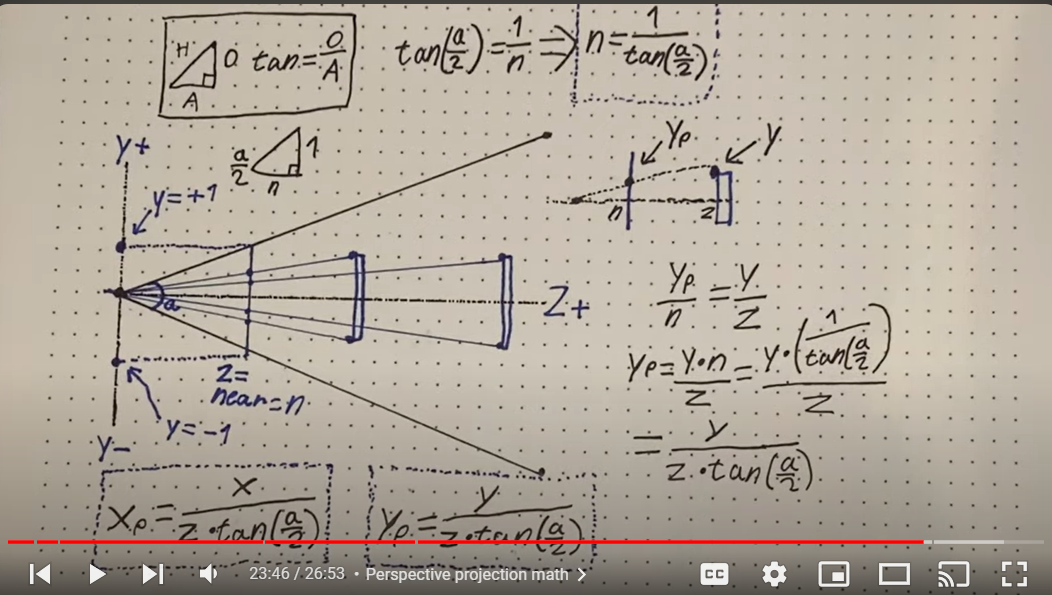 H O A tan = O/A
tan(a/2) = 1/n ⇒ n = 1/tan(a/2)
a/2 1 n
Y+
y=+1
a
Z+
z=
near=n
y=-1
Y-
Yp Y
n z
Yp/n = Y/Z
Yp = Y·n/Z = Y·(1/tan(a/2))/Z
= Y/(Z·tan(a/2))
Xp = X/(Z·tan(a/2))
Yp = Y/(Z·tan(a/2))
23:46 / 26:53 • Perspective projection math
CC